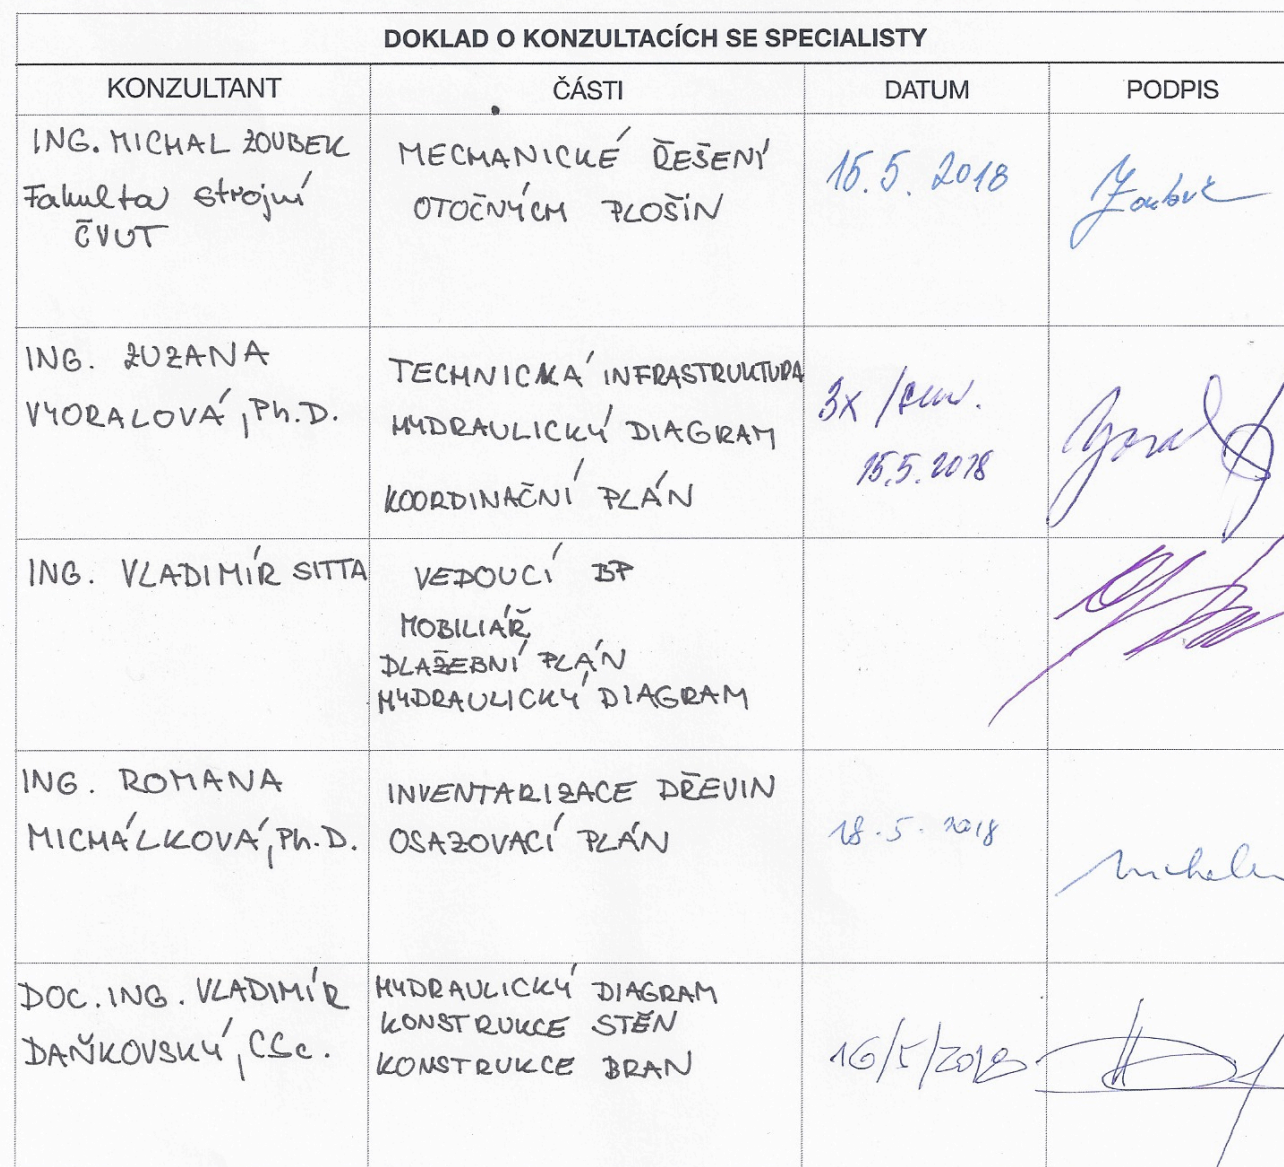 DOKLAD O KONZULTACÍCH SE SPECIALISTY
KONZULTANT ČÁSTI DATUM PODPIS
ING. MICHAL ZOUBEK
Fakulta strojní
ČVUT
MECHANICKÉ ŘEŠENÍ
OTOČNÝCH PLOŠIN
15.5. 2018
ING. ZUZANA
VYORALOVÁ, Ph.D.
TECHNICKÁ INFRASTRUKTURA
HYDRAULICKÝ DIAGRAM
KOORDINAČNÍ PLÁN
3x
15.5.2018
ING. VLADIMÍR SITTA
VEDOUCÍ BP
MOBILIÁŘ
DLAŽEBNÍ PLÁN
HYDRAULICKÝ DIAGRAM
ING. ROMANA
MICHÁLKOVÁ, Ph.D.
INVENTARIZACE DŘEVIN
OSAZOVACÍ PLÁN
18.5. 2018
DOC. ING. VLADIMÍR
DAŇKOVSKÝ, CSc.
HYDRAULICKÝ DIAGRAM
KONSTRUKCE STĚN
KONSTRUKCE BRAN
16/5/2018